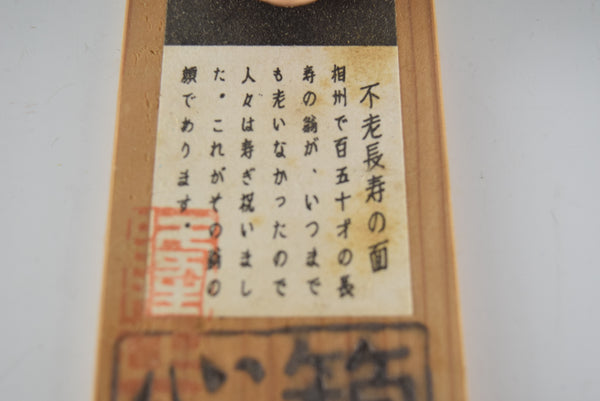 不老長寿の面
相州で百五十才の長
寿の翁が、いつまで
も老いなかったので
人々は寿ぎ祝いまし
た。これがその翁の
顔であります。